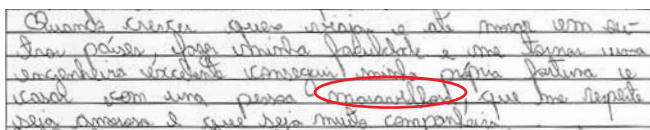 Quando crescer quero viajar e até morar em ou-
tros países, fazer minha faculdade e me tornar uma
engenheira excelente conseguir minha própria fortuna e
casar com uma pessoa maravilhosa, que me respeite
seja amorosa e que seja muito companheira